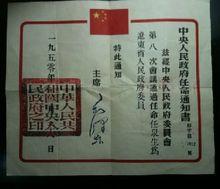 中央人民政府任命通知書
茲經中央人民政府委員會
第八次會議通過任命任泉生爲
遼東省人民政府委員
特此通知
主席
毛澤東
一九五〇年
中華人民共和國中央人民政府之印